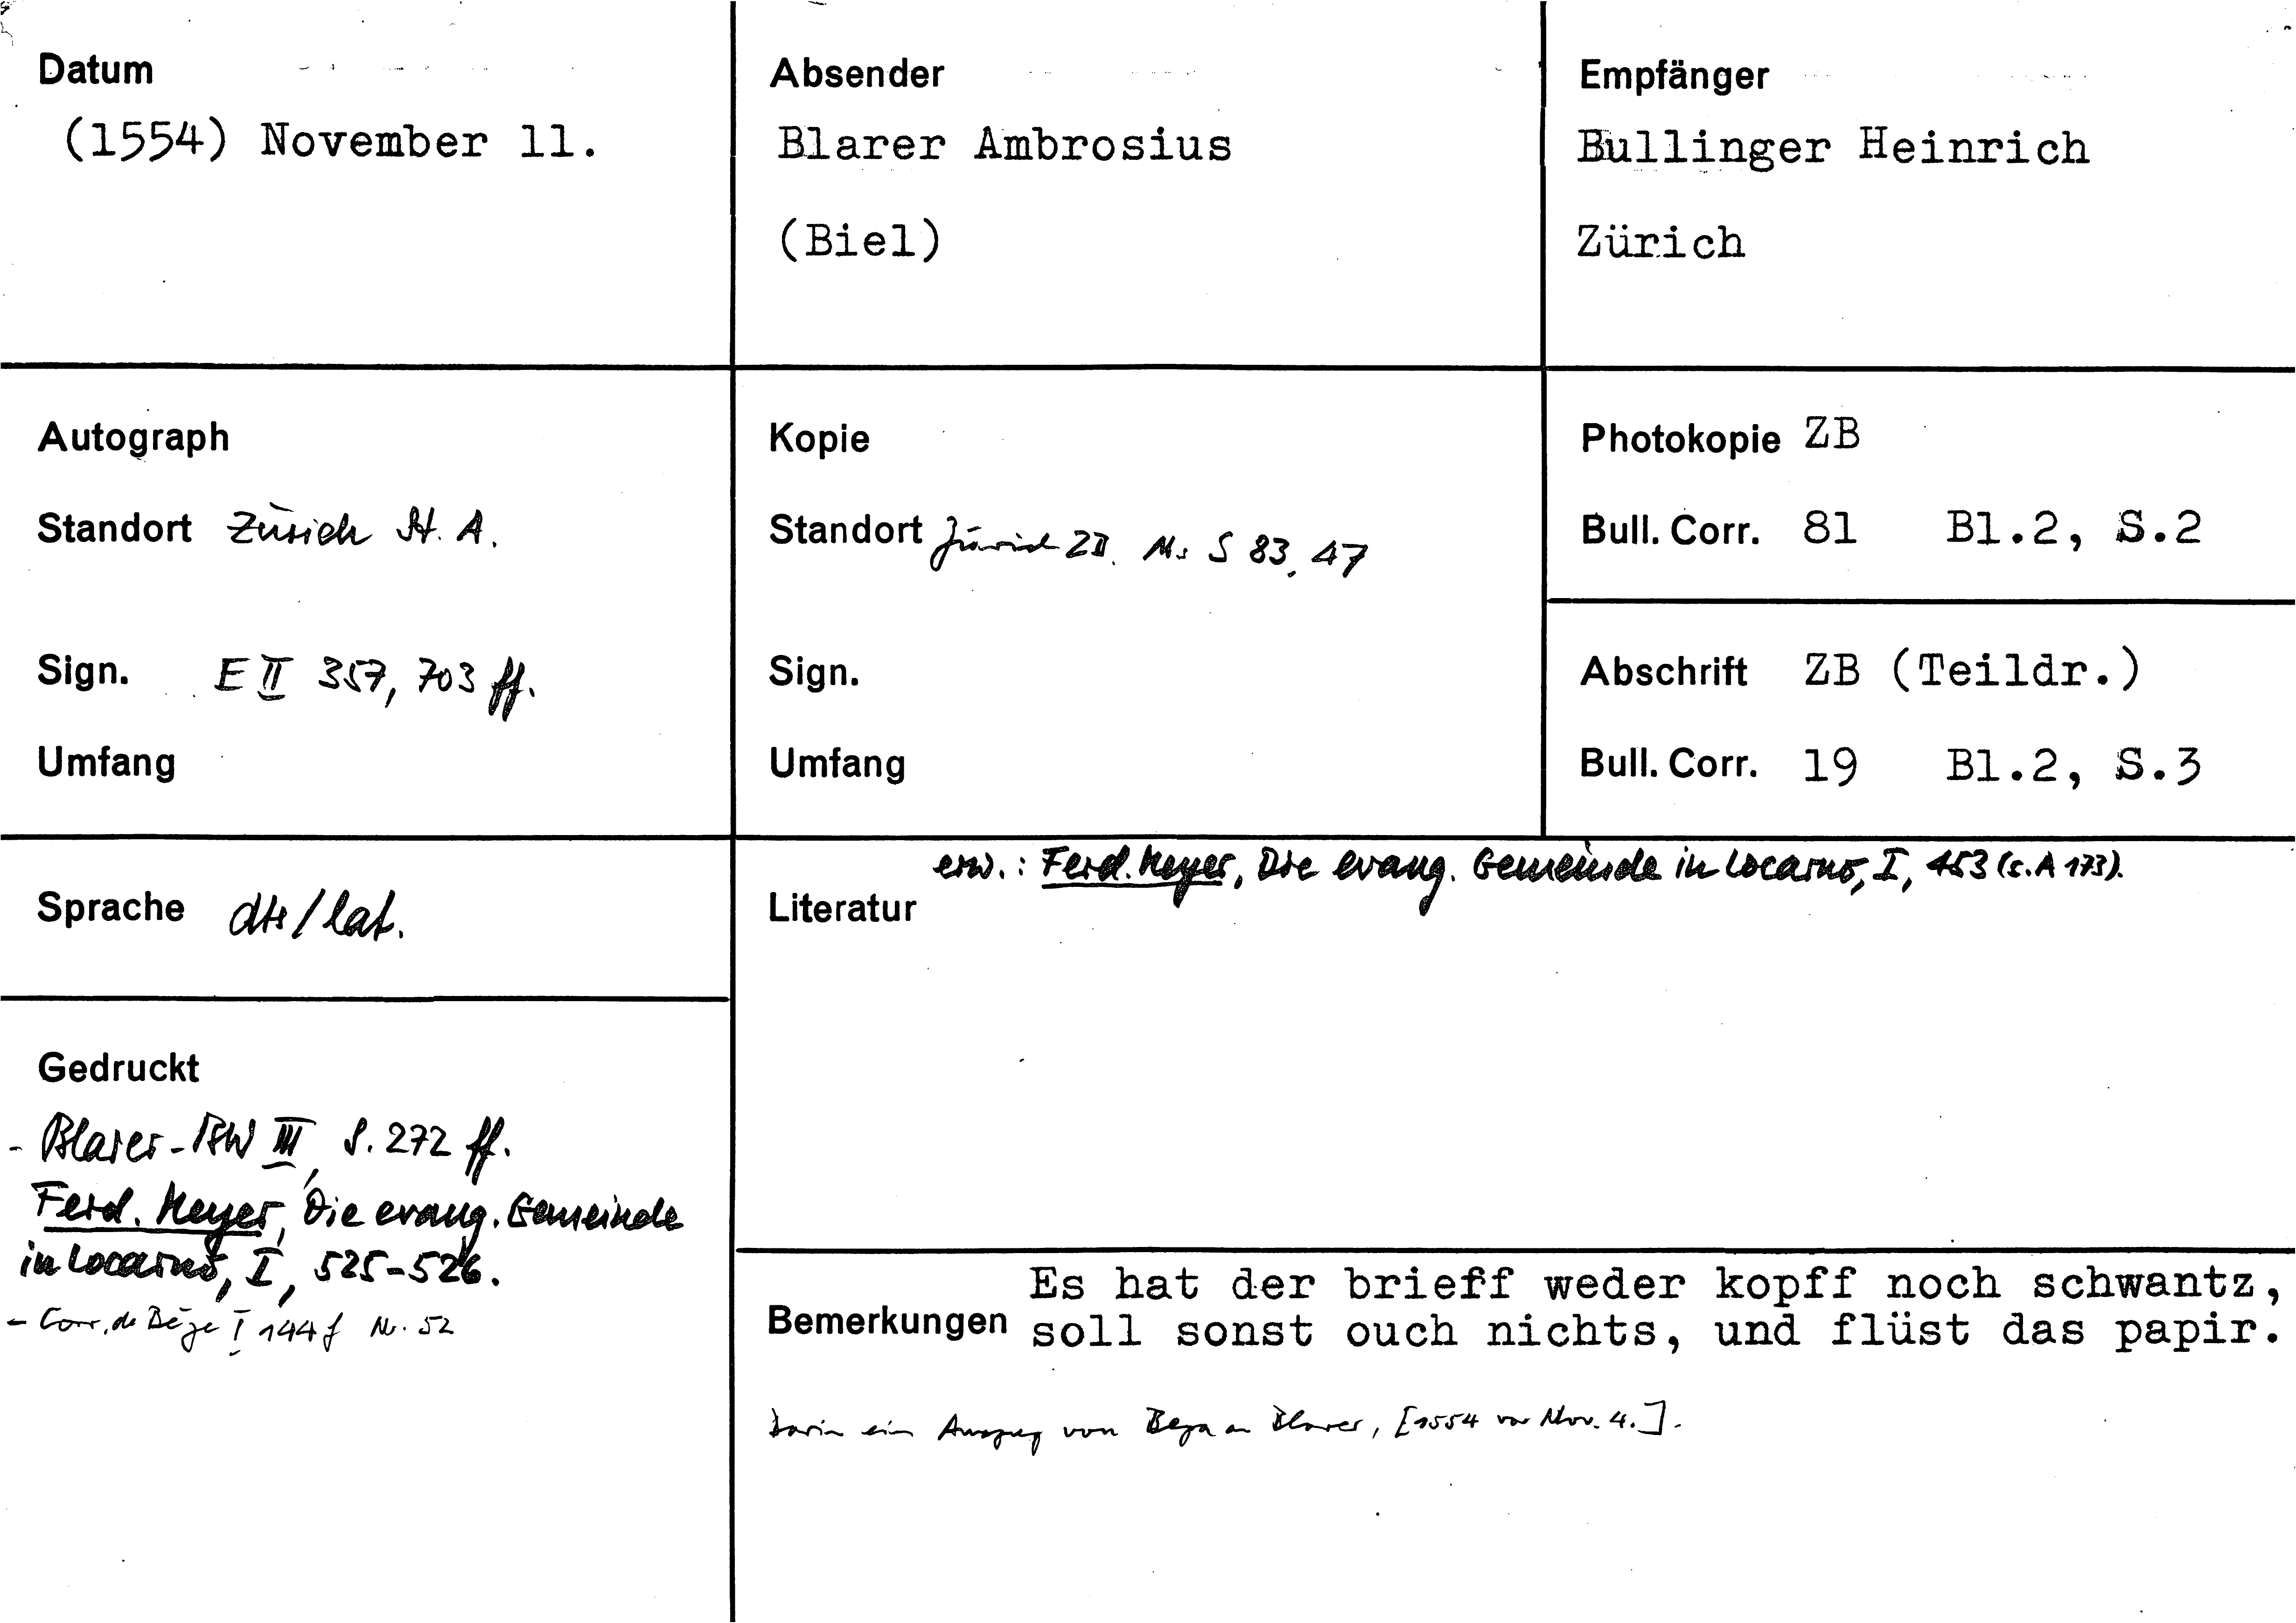 Datum
(1554) November 11.
Absender
Blarer Ambrosius
(Biel)
Empfänger
Bullinger Heinrich
Zürich
Autograph
Standort Zürich St. A.
Sign. E II 357, 703 ff.
Umfang
Kopie
Standort Zürich ZB. Ms S 83, 47
Sign.
Umfang
Photokopie ZB
Bull. Corr. 81 Bl.2, S.2
Abschrift ZB (Teildr.)
Bull. Corr. 19 Bl.2, S.3
Sprache dts/lat.
Gedruckt
- Blarer-BW III, S. 272 ff.
Ferd. Meyer, Die evang. Gemeinde
in Locarno, I, 525-526.
- Corr. de Bèze I 144 f Nr. 52
erw.: Ferd. Meyer, Die evang. Gemeinde in Locarno, I, 453 (s. A 173).
Literatur
Bemerkungen Es hat der brieff weder kopff noch schwantz,
soll sonst ouch nichts, und flüst das papir.
Darin ein Auszug von Beza an Blarer, [1554 vor Nov. 4.].